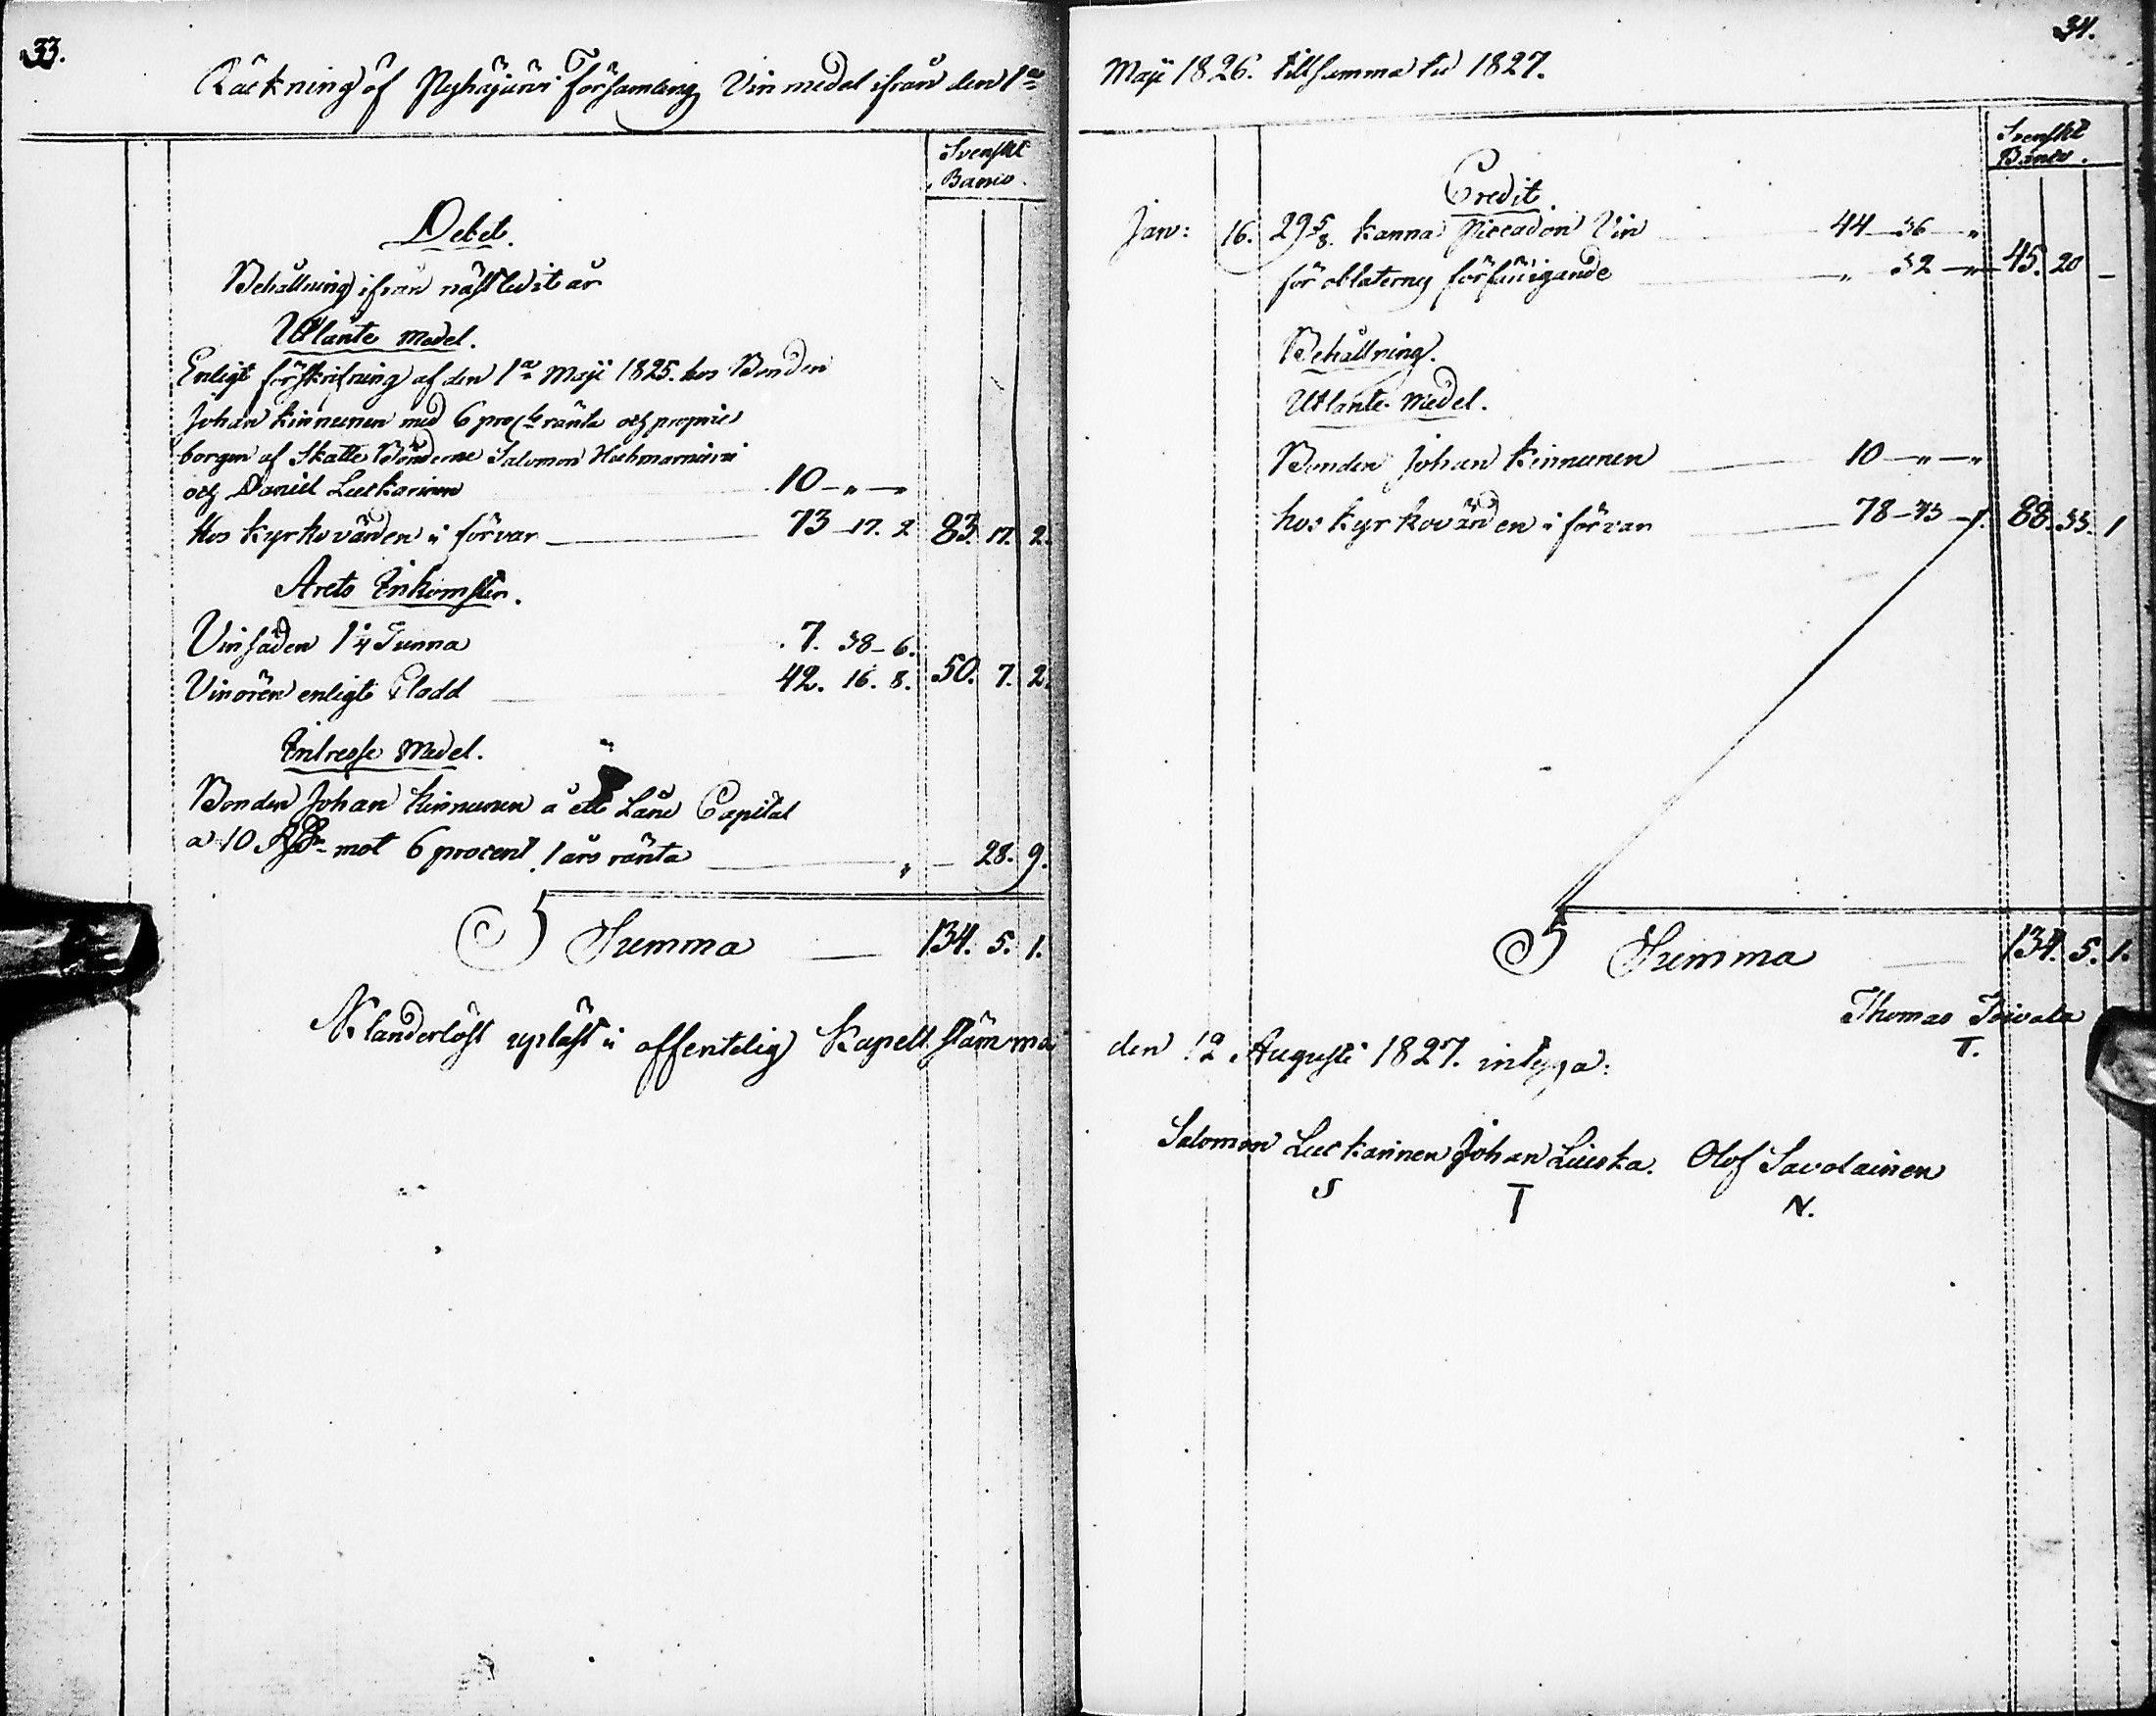 33.
Räckning öf Pyhäjärvi Församling Vin medel ifrån den 1a
Svenskt
Banco.
Debet.
Behållning ifrån nästledit år
Utlånte medel.
Enligt förskrifning af den 1a Maji 1825. hos Bonden
Johan Kinnunen med 6 proCts ränta och proprie
borgen af Skatte Bönderne Salomon
och Daniel Leskarinen 10 - " - "
Hos Kyrkovärden i förvar 73 - 17. 2 83. 17. 2.
Årets Inkomster.
Vinsäden 1 1/4 Tunna 7. 38 - 6.
Vinören enligt Clodd 42. 16. 8. 50. 7. 2.
Intresse Medel.
Bonden Johan Kinnunen å ett Låne Capital
a 10 mot 6 procent 1 års ränta " - 28. 9.
Summa 134. 5. 1.
Klanderlöst upläst i offentelig Kapell stämma
34.
Maji 1826. till samma tid 1827.
Svenskt
Banco.
Credit.
Jan: 16. 29 5/8. kanna Piccadon Vin 44 - 36 - "
för oblaterny förfärigande " 32 - " 45. 20 -
Behållning.
Utlånte Medel.
Bonden Johan Kinnunen 10 - " - "
hos Kyrkovärden i förvar 78 - 33 - 1. 88. 33. 1
Summa 134. 5. 1.
Thomas Toivola
T.
den 12 Augusti 1827. intyga:
Salomon Leskarinen Johan Lieska. Olof Savolainen
S T N.